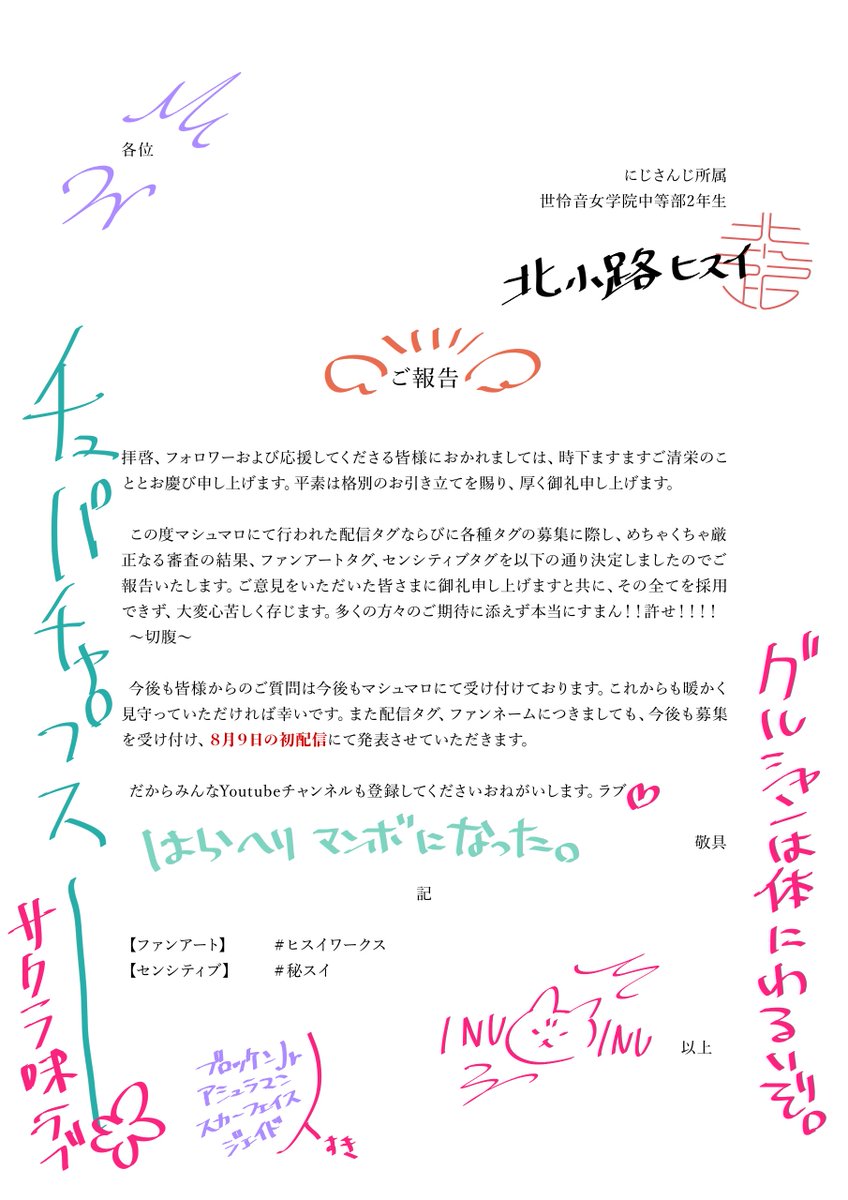 各位
にじさんじ所属
世怜音女学院中等部2年生
北小路ヒスイ
ご報告
拝啓、フォロワーおよび応援してくださる皆様におかれましては、時下ますますご清栄のこ
ととお慶び申し上げます。平素は格別のお引き立てを賜り、厚く御礼申し上げます。
この度マシュマロにて行われた配信タグならびに各種タグの募集に際し、めちゃくちゃ厳
正なる審査の結果、ファンアートタグ、センシティブタグを以下の通り決定しましたのでご
報告いたします。ご意見をいただいた皆さまに御礼申し上げますと共に、その全てを採用
できず、大変心苦しく存じます。多くの方々のご期待に添えず本当にすまん！！許せ！！！！
～切腹～
今後も皆様からのご質問は今後もマシュマロにて受け付けております。これからも暖かく
見守っていただければ幸いです。また配信タグ、ファンネームにつきましても、今後も募集
を受け付け、8月9日の初配信にて発表させていただきます。
だからみんなYoutubeチャンネルも登録してくださいおねがいします。ラブ
はらへり マンボになった。
敬具
記
【ファンアート】 #ヒスイワークス
【センシティブ】 #秘スイ
INU INU
以上
チュパチャプスー
サクラ味ラブ
グルシャンは体にわるいぞ。
ブロッケンJr
アシュラマン
スカーフェイス
ジェイド
すき